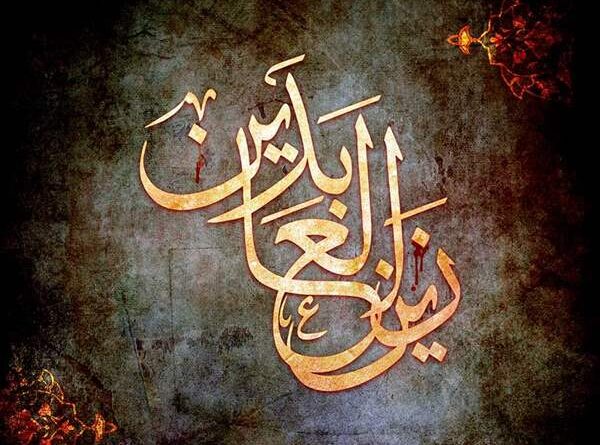 زین العابدین